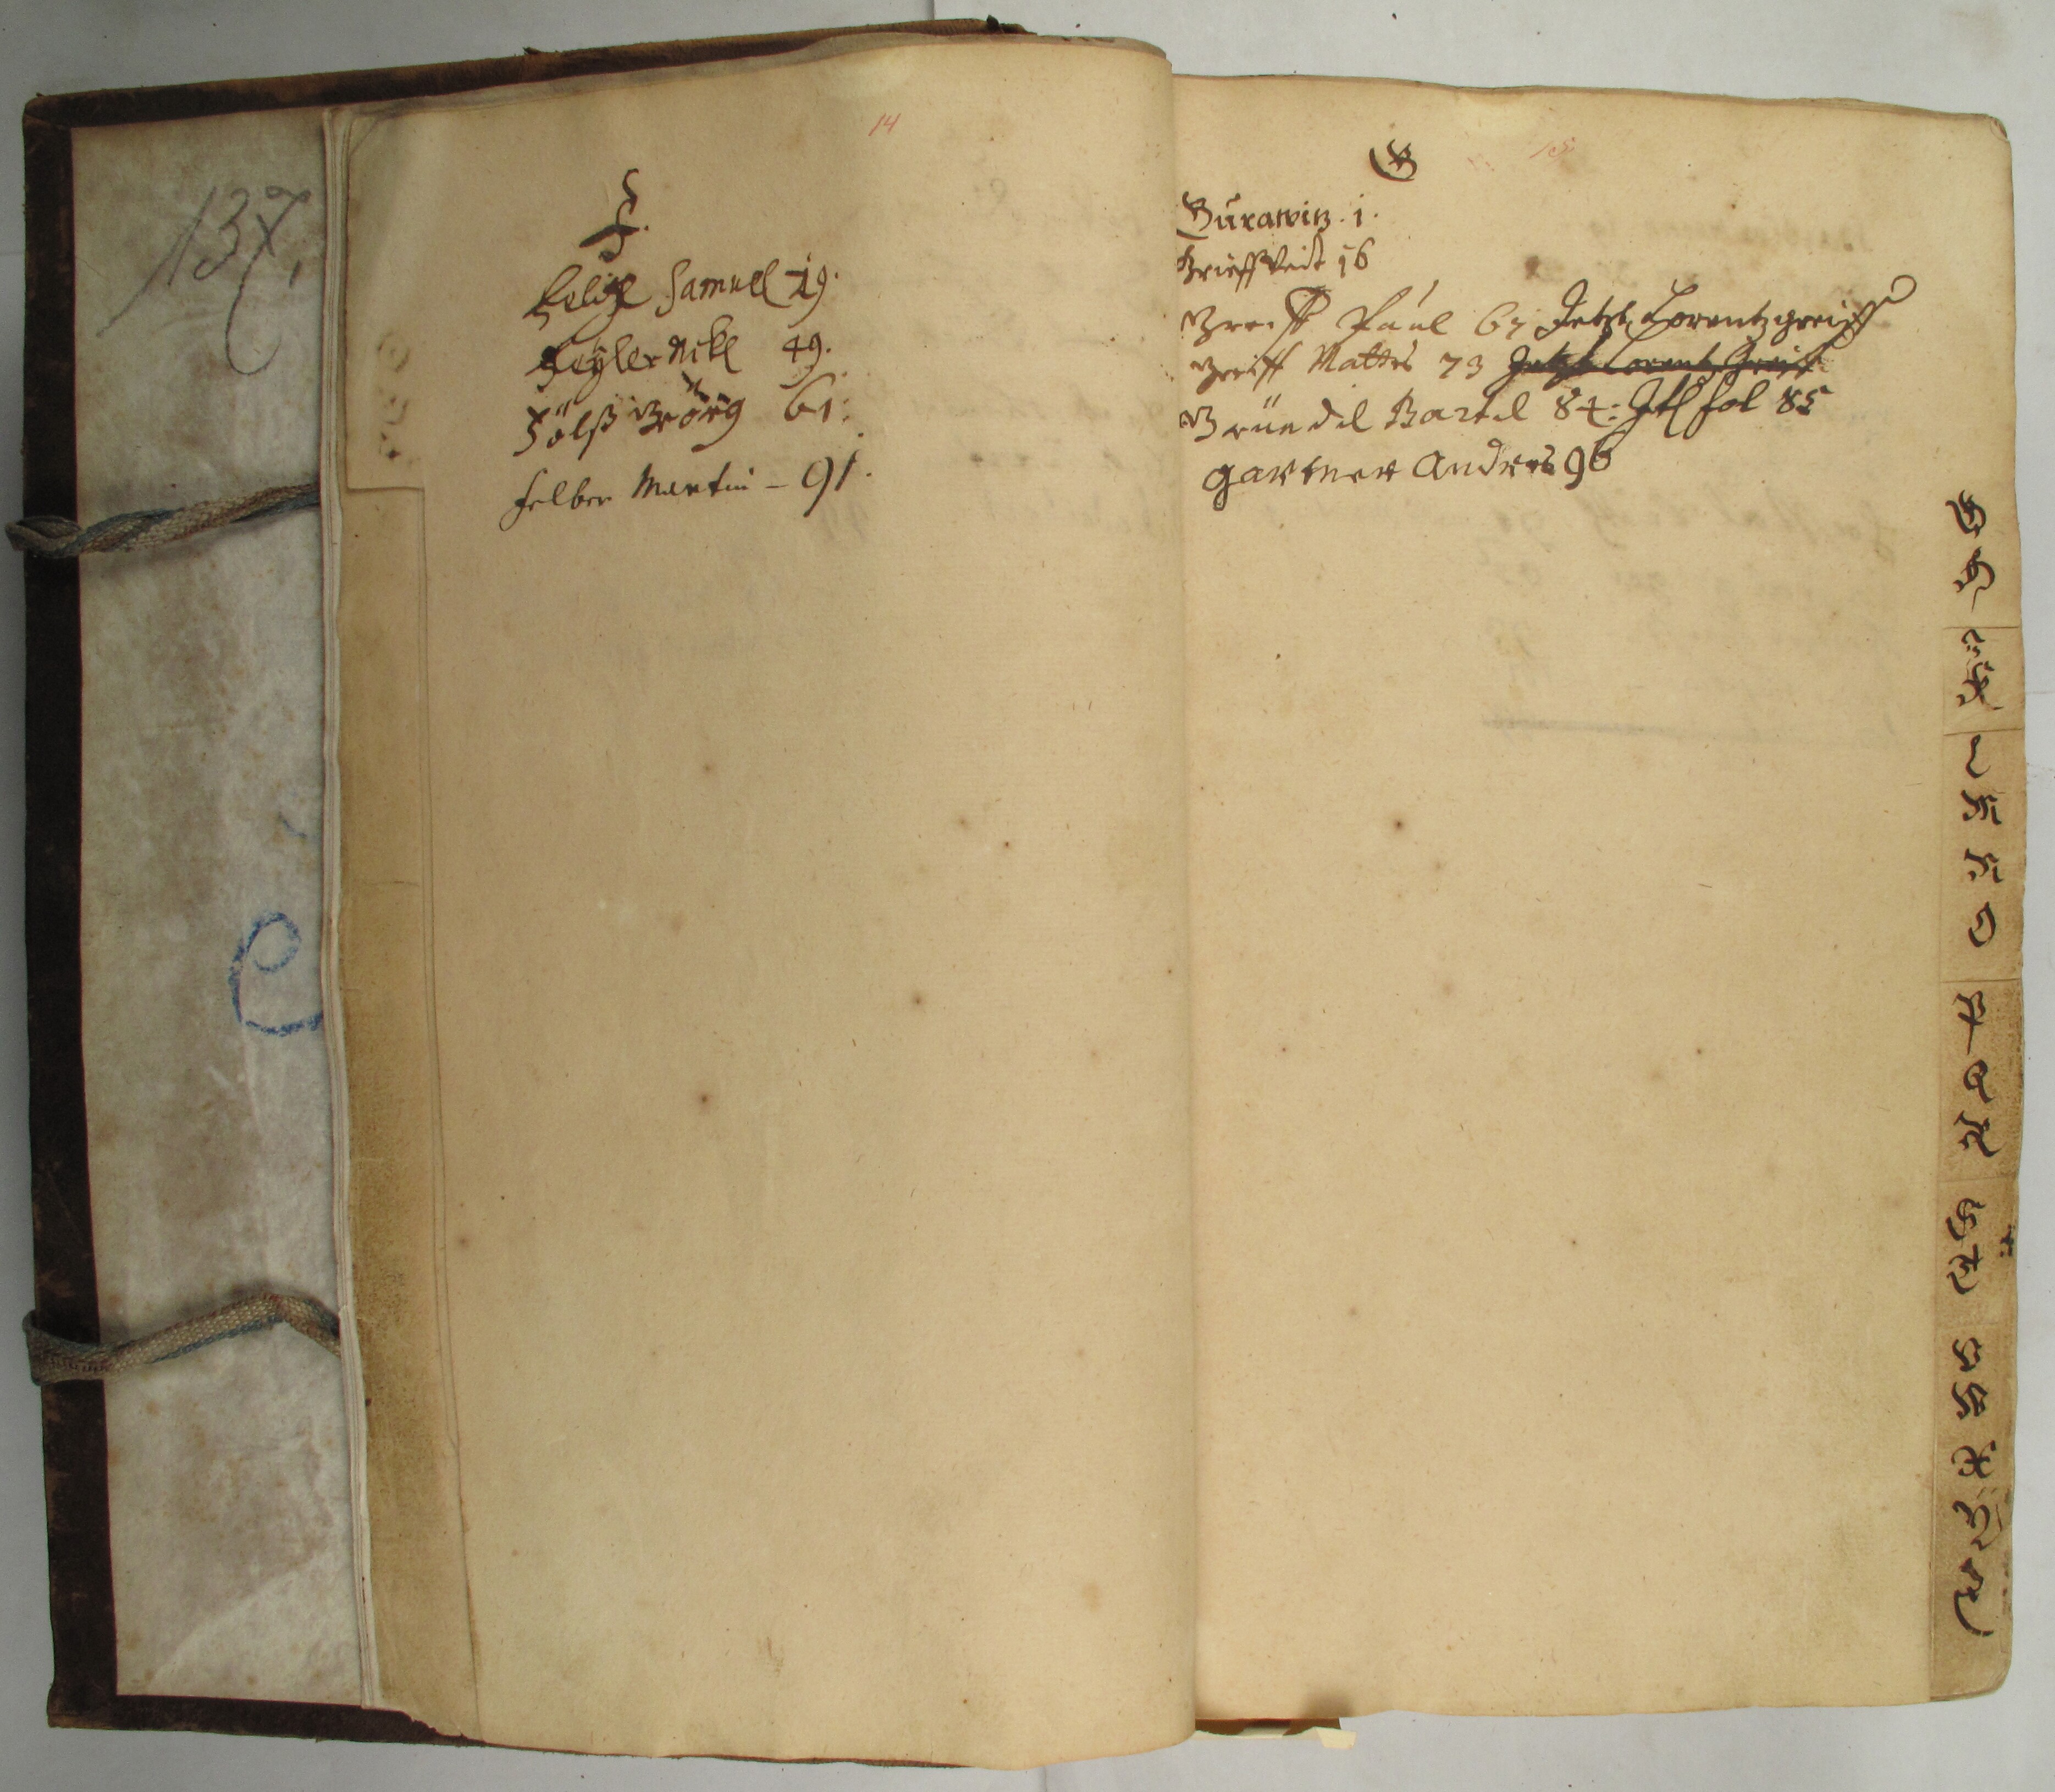 137
14
F.
Felix Samuel 19.
Feyler Nikl 49.
Fölß Görg 61:
Felber Martin - 91.
15
G
Gurawitz. 1.
Grieff Veit 16
Greiff Paul 67 Jetzt Lorentz greiff
Greiff Mattes 73 Jetzt Lorentz Greiff
Gründel Bartel 84: Itl fol 85
Gartner Andres 96
G
H
L
M
N
O
P
Q
R